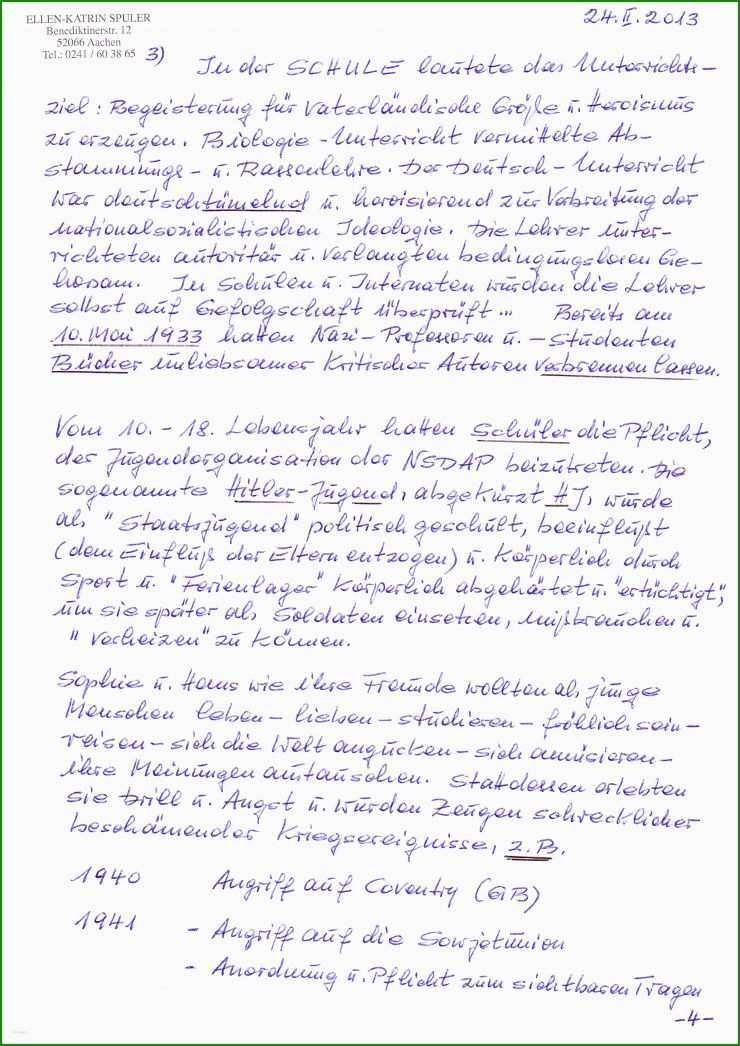 ELLEN-KATRIN SPULER
Benediktinerstr. 12
52066 Aachen
Tel.: 0241 / 60 38 65
24.II.2013
3)
In der SCHULE lautete das Unterrichts-
ziel: Begeisterung für vaterländische Größe u. Heroismus
zu erzeugen. Biologie-Unterricht vermittelte Ab-
stammungs- u. Rassenlehre. Der Deutsch-Unterricht
war deutschtümelnd u. heroisierend zur Verbreitung der
nationalsozialistischen Ideologie. Die Lehrer unter-
richteten autoritär u. verlangten bedingungslosen Ge-
horsam. In Schulen u. Internaten wurden die Lehrer
selbst auf Gefolgschaft überprüft ... Bereits am
10. Mai 1933 hatten Nazi-Professoren u. -Studenten
Bücher unliebsamer kritischer Autoren verbrennen lassen.
Vom 10. - 18. Lebensjahr hatten Schüler die Pflicht,
der Jugendorganisation der NSDAP beizutreten. Die
sogenannte Hitler-Jugend, abgekürzt HJ, wurde
als "Staatsjugend" politisch geschult, beeinflußt
(dem Einfluß der Eltern entzogen) u. körperlich durch
Sport u. "Ferienlager" körperlich abgehärtet u. "ertüchtigt",
um sie später als Soldaten einsetzen, mißbrauchen u.
"verheizen" zu können.
Sophie u. Hans wie ihre Freunde wollten als junge
Menschen leben - lieben - studieren - fröhlich sein -
reisen - sich die Welt angucken - sich amüsieren -
ihre Meinungen austauschen. Stattdessen erlebten
sie Drill u. Angst u. wurden Zeugen schrecklicher
beschämender Kriegsereignisse, z.B.
1940 Angriff auf Coventry (GB)
1941 - Angriff auf die Sowjetunion
- Anordnung u. Pflicht zum sichtbaren Tragen
-4-